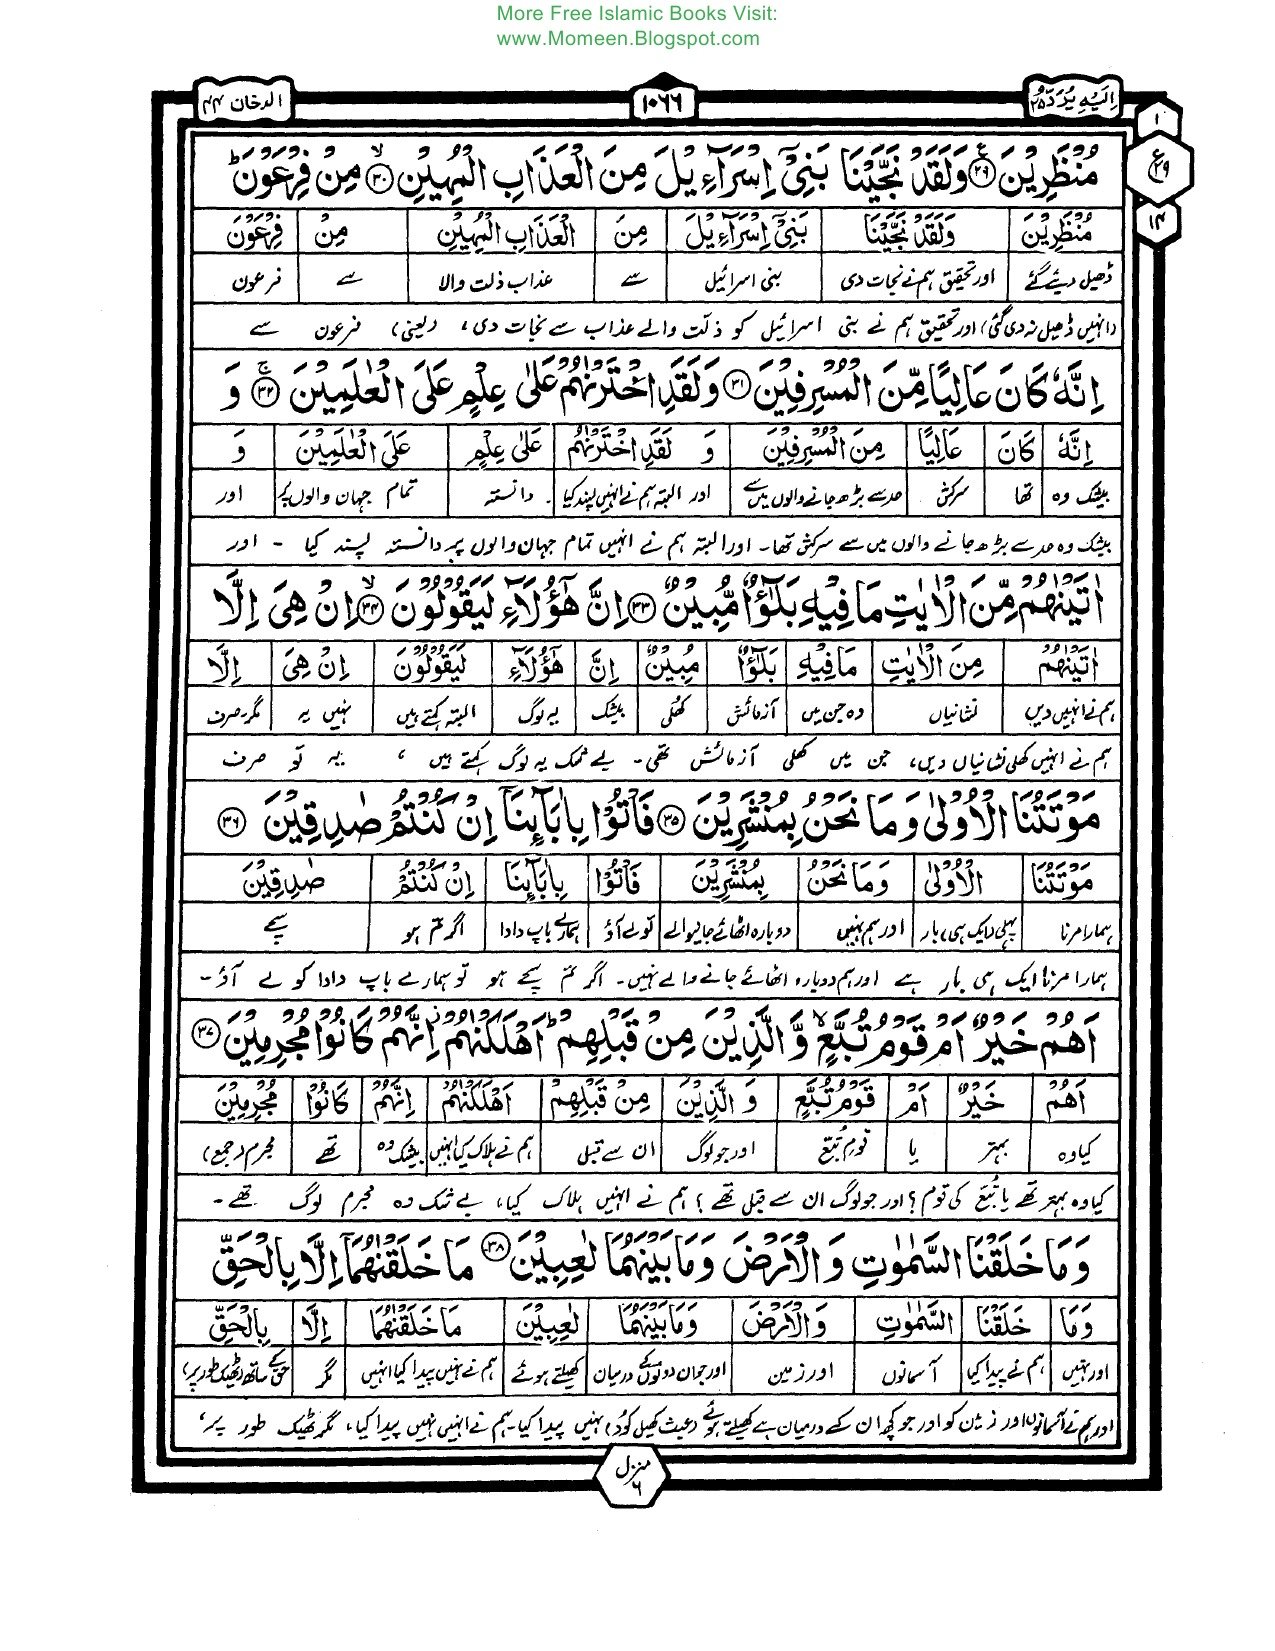 More Free Islamic Books Visit:
www.Momeen.Blogspot.com
اِلَیْهِ یُرَدُّ ۲۵
۱۰۶۶
الدخان ۴۴
۱
ع ۲۹
۱۴
مُنْظَرِیْنَ ﴿۲۹﴾ وَلَقَدْ نَجَّیْنَا بَنِیْۤ اِسْرَآءِیْلَ مِنَ الْعَذَابِ الْمُهِیْنِ ﴿۳۰﴾ۙ مِنْ فِرْعَوْنَ ؕ
مُنْظَرِیْنَ وَلَقَدْ نَجَّیْنَا بَنِیْۤ اِسْرَآءِیْلَ مِنَ الْعَذَابِ الْمُهِیْنِ مِنْ فِرْعَوْنَ
ڈھیل دیئے گئے اور تحقیق ہم نے نجات دی بنی اسرائیل سے عذاب ذلت والا سے فرعون
(انہیں ڈھیل نہ دی گئی) اور تحقیق ہم نے بنی اسرائیل کو ذلت والے عذاب سے نجات دی، (یعنی) فرعون سے
اِنَّهٗ كَانَ عَالِیًا مِّنَ الْمُسْرِفِیْنَ ﴿۳۱﴾ وَلَقَدِ اخْتَرْنٰهُمْ عَلٰی عِلْمٍ عَلَی الْعٰلَمِیْنَ ﴿۳۲﴾ۚ وَ
اِنَّهٗ كَانَ عَالِیًا مِنَ الْمُسْرِفِیْنَ وَ لَقَدِ اخْتَرْنٰهُمْ عَلٰی عِلْمٍ عَلَی الْعٰلَمِیْنَ وَ
بیشک وہ تھا سرکش حد سے بڑھ جانے والوں میں سے اور البتہ ہم نے انہیں پسند کیا دانستہ تمام جہان والوں پر اور
بیشک وہ حد سے بڑھ جانے والوں میں سے سرکش تھا۔ اور البتہ ہم نے انہیں تمام جہان والوں پر دانستہ پسند کیا ۔ اور
اٰتَیْنٰهُمْ مِّنَ الْاٰیٰتِ مَا فِیْهِ بَلٰٓؤٌا مُّبِیْنٌ ﴿۳۳﴾ اِنَّ هٰۤؤُلَآءِ لَیَقُوْلُوْنَ ﴿۳۴﴾ۙ اِنْ هِیَ اِلَّا
اٰتَیْنٰهُمْ مِنَ الْاٰیٰتِ مَا فِیْهِ بَلٰٓؤٌا مُبِیْنٌ اِنَّ هٰۤؤُلَآءِ لَیَقُوْلُوْنَ اِنْ هِیَ اِلَّا
ہم نے انہیں دیں نشانیاں وہ جن میں آزمائش کھلی بیشک یہ لوگ البتہ کہتے ہیں نہیں یہ مگر۔صرف
ہم نے انہیں کھلی نشانیاں دیں، جن میں کھلی آزمائش تھی۔ بے شک یہ لوگ کہتے ہیں ، یہ تو صرف
مَوْتَتُنَا الْاُوْلٰی وَمَا نَحْنُ بِمُنْشَرِیْنَ ﴿۳۵﴾ فَاْتُوْا بِاٰبَآئِنَاۤ اِنْ كُنْتُمْ صٰدِقِیْنَ ﴿۳۶﴾
مَوْتَتُنَا الْاُوْلٰی وَمَا نَحْنُ بِمُنْشَرِیْنَ فَاْتُوْا بِاٰبَآئِنَا اِنْ كُنْتُمْ صٰدِقِیْنَ
ہمارا مرنا پہلی (ایک ہی) بار اور ہم نہیں دوبارہ اٹھائے جانیوالے تو لے آؤ ہمارے باپ دادا اگر تم ہو سچے
ہمارا مرنا ایک ہی بار ہے اور ہم دوبارہ اٹھائے جانے والے نہیں۔ اگر تم سچے ہو تو ہمارے باپ دادا کو لے آؤ۔
اَهُمْ خَیْرٌ اَمْ قَوْمُ تُبَّعٍ ۙ وَّالَّذِیْنَ مِنْ قَبْلِهِمْ ؕ اَهْلَكْنٰهُمْ ؗ اِنَّهُمْ كَانُوْا مُجْرِمِیْنَ ﴿۳۷﴾
اَهُمْ خَیْرٌ اَمْ قَوْمُ تُبَّعٍ وَ الَّذِیْنَ مِنْ قَبْلِهِمْ اَهْلَكْنٰهُمْ اِنَّهُمْ كَانُوْا مُجْرِمِیْنَ
کیا وہ بہتر یا قوم تبع اور جو لوگ ان سے قبل ہم نے ہلاک کیا انہیں بیشک وہ تھے مجرم (جمع)
کیا وہ بہتر تھے یا تُبّع کی قوم؟ اور جو لوگ ان سے قبل تھے؟ ہم نے انہیں ہلاک کیا، بے شک وہ مجرم لوگ تھے۔
وَمَا خَلَقْنَا السَّمٰوٰتِ وَالْاَرْضَ وَمَا بَیْنَهُمَا لٰعِبِیْنَ ﴿۳۸﴾ مَا خَلَقْنٰهُمَاۤ اِلَّا بِالْحَقِّ
وَمَا خَلَقْنَا السَّمٰوٰتِ وَالْاَرْضَ وَمَا بَیْنَهُمَا لٰعِبِیْنَ مَا خَلَقْنٰهُمَا اِلَّا بِالْحَقِّ
اور نہیں ہم نے پیدا کیا آسمانوں اور زمین اور جو ان دونوں کے درمیان کھیلتے ہوئے ہم نے نہیں پیدا کیا انہیں مگر حق کے ساتھ (ٹھیک طور پر)
اور ہم نے آسمانوں اور زمین کو اور جو کچھ ان کے درمیان ہے کھیلتے ہوئے (عبث کھیل کود) نہیں پیدا کیا۔ ہم نے انہیں نہیں پیدا کیا، مگر ٹھیک طور پر،
منزل ۶